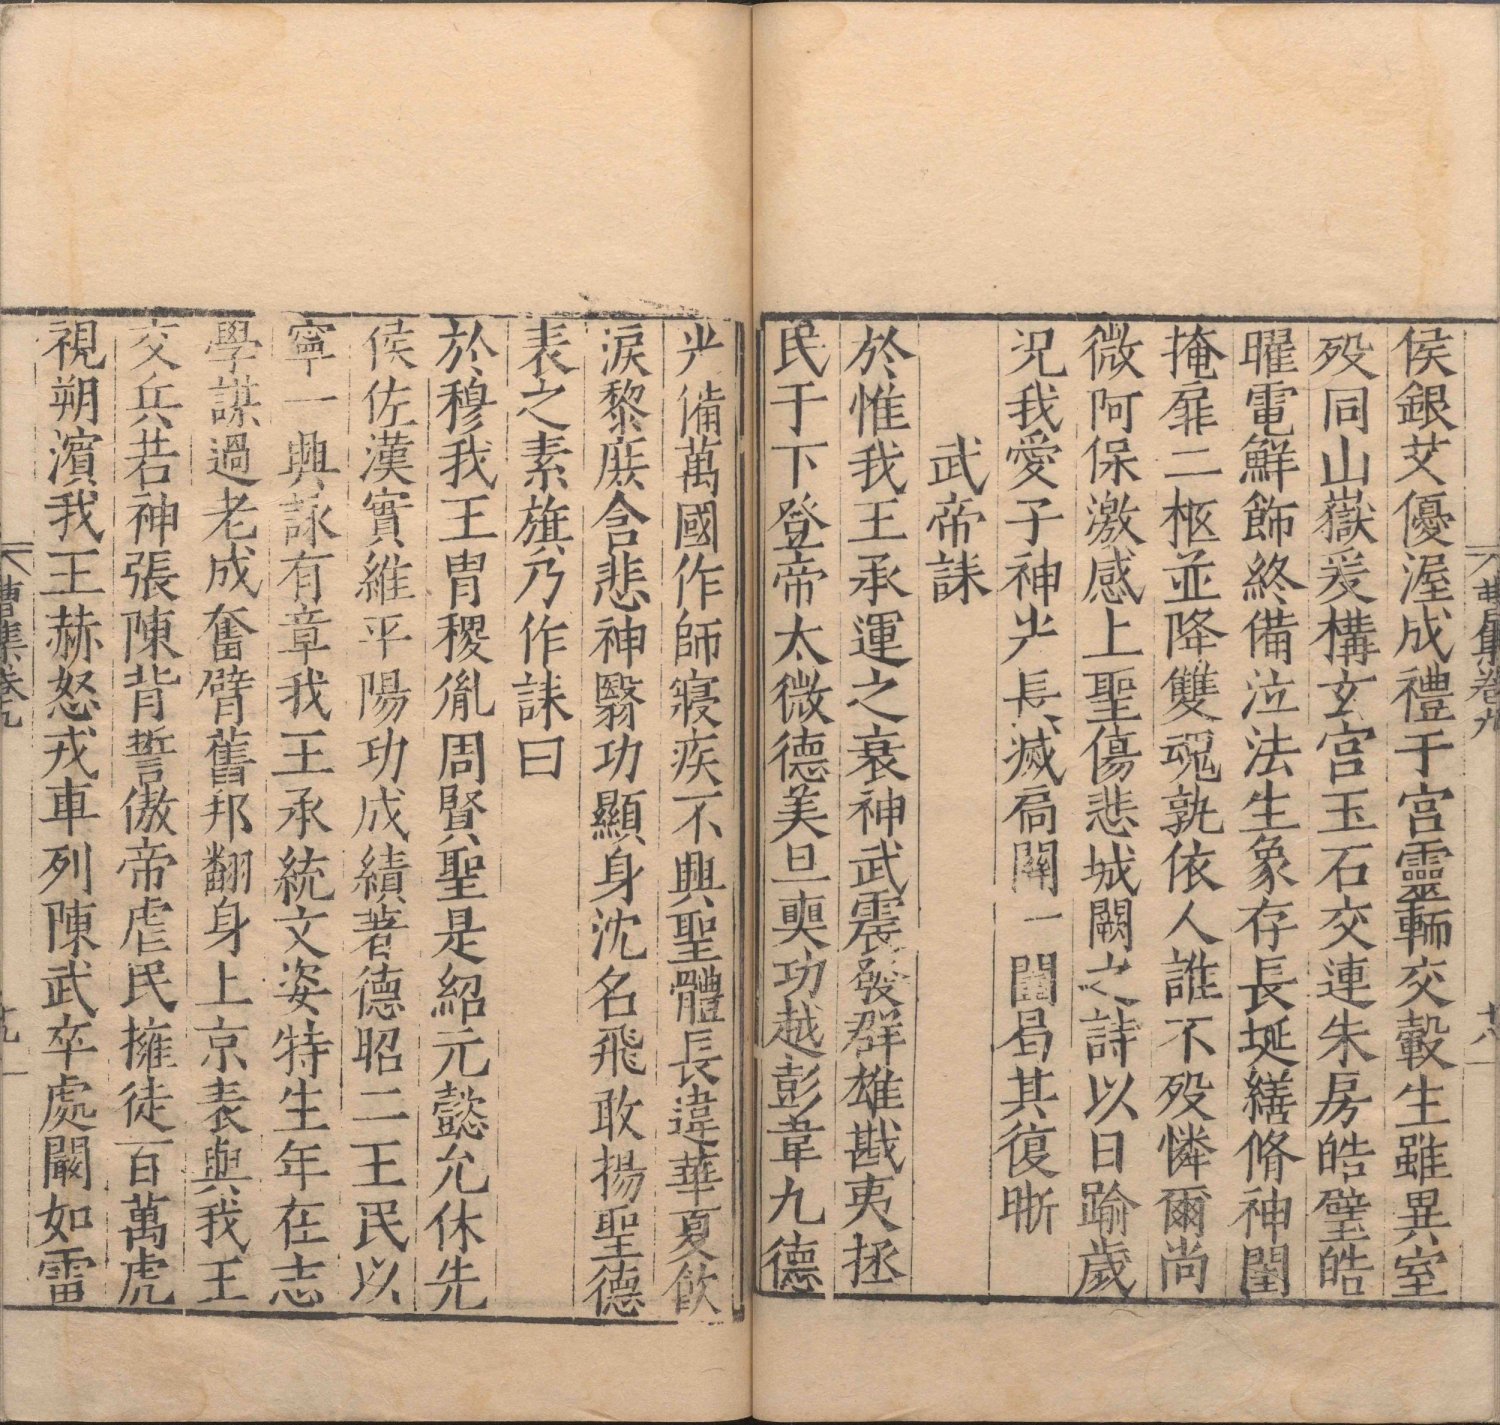 侯銀艾優渥成禮于宮靈輀交轂生雖異室
殁同山嶽爰構玄宮玉石交連朱房皓璧皓
曜電鮮飾終備泣法生象存長埏繕脩神閨
掩扉二柩並降雙魂孰依人誰不殁憐爾尚
微阿保激感上聖傷悲城闕之詩以日踰歲
況我愛子神光長滅扃關一闔曷其復晣
武帝誄
於惟我王承運之衰神武震發群雄戡夷拯
民于下登帝太微德美旦奭功越彭韋九德
光備萬國作師寢疾不興聖體長違華夏飲
淚黎庶含悲神翳功顯身沈名飛敢揚聖德
表之素旗乃作誄曰
於穆我王胄稷胤周賢聖是紹元懿允休先
侯佐漢實維平陽功成績著德昭二王民以
寧一興詠有章我王承統文姿特生年在志
學謀過老成奮臂舊邦翻身上京表與我王
交兵若神張陳背誓傲帝虐民擁徒百萬虎
視朔濱我王赫怒戎車列陳武卒處闞如雷
曹集卷九
十九